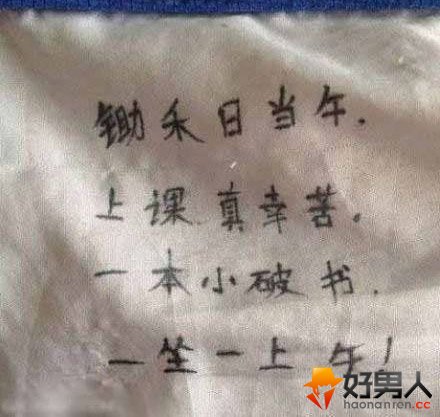 锄禾日当午.
上课真幸苦。
一本小破书.
一坐一上午!
好男人
haonanren.cc